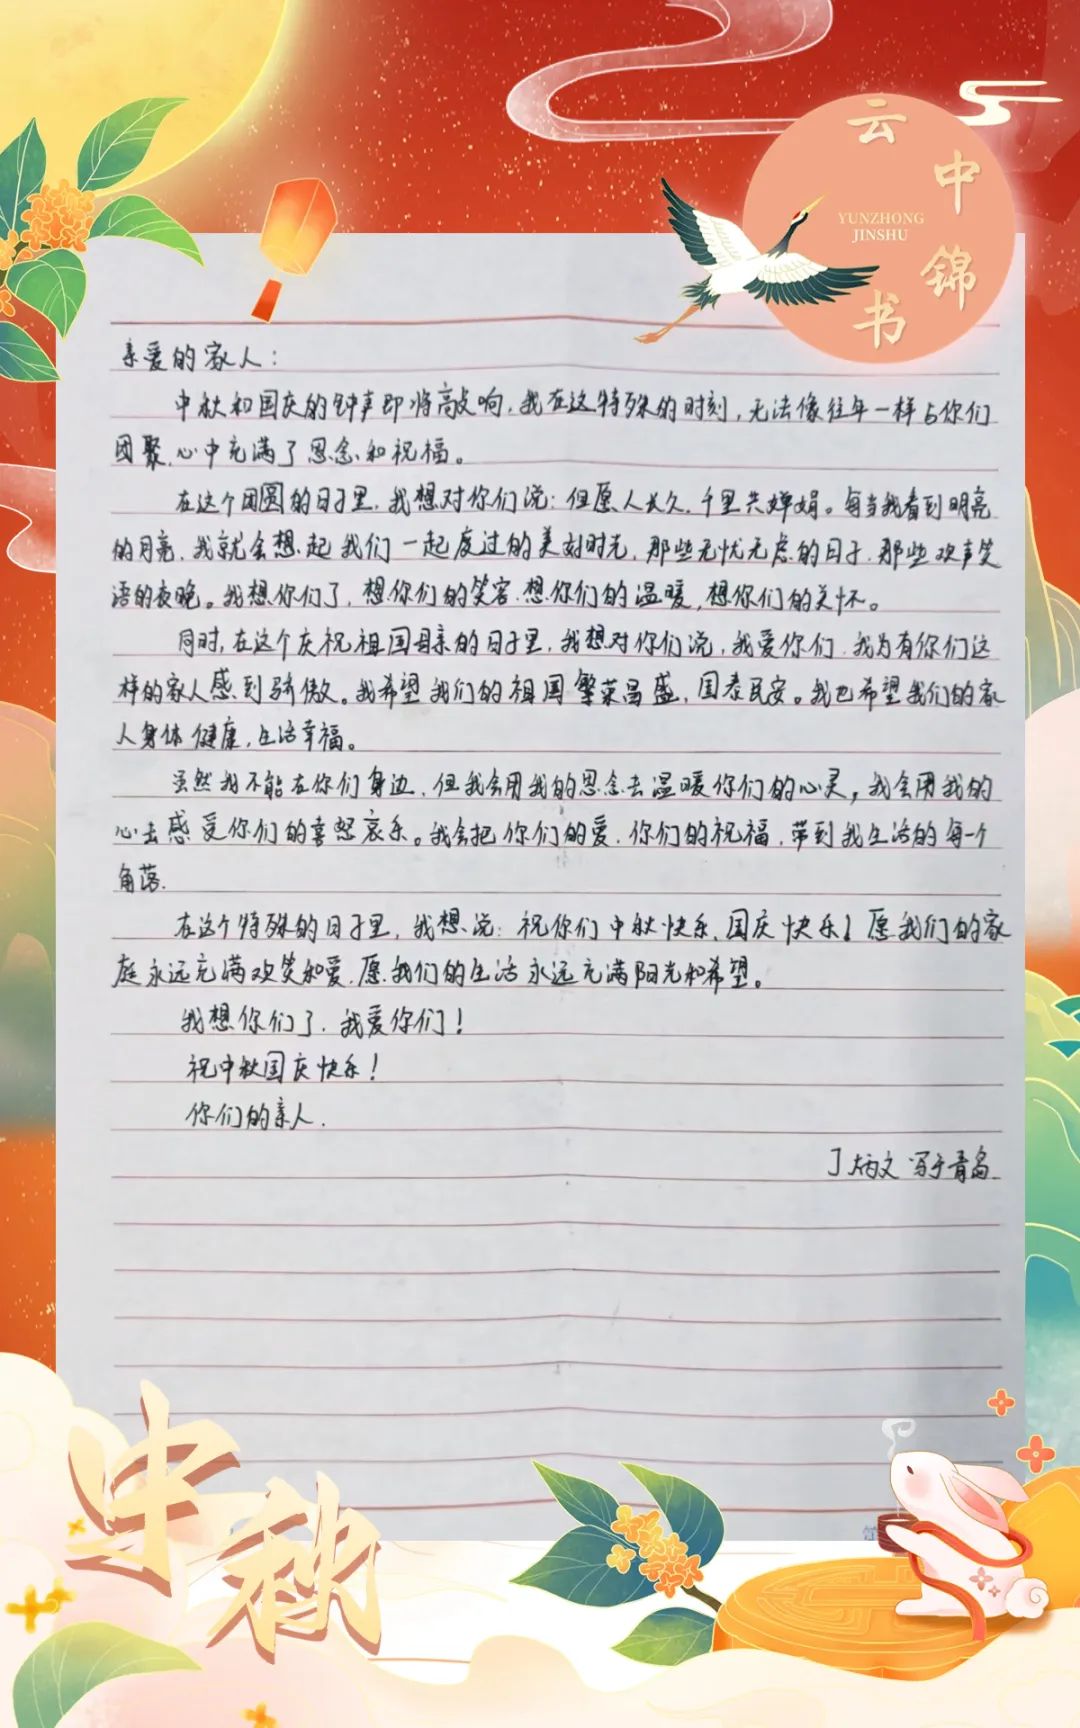 云中锦书
YUNZHONG
JINSHU
亲爱的家人：
中秋和国庆的钟声即将敲响，我在这特殊的时刻，无法像往年一样与你们
团聚，心中充满了思念和祝福。
在这个团圆的日子里，我想对你们说：但愿人长久，千里共婵娟。每当我看到明亮
的月亮，我就会想起我们一起度过的美好时光，那些无忧无虑的日子，那些欢声笑
语的夜晚。我想你们了，想你们的笑容，想你们的温暖，想你们的关怀。
同时，在这个庆祝祖国母亲的日子里，我想对你们说，我爱你们，我为有你们这
样的家人感到骄傲。我希望我们的祖国繁荣昌盛，国泰民安。我也希望我们的家
人身体健康，生活幸福。
虽然我不能在你们身边，但我会用我的思念去温暖你们的心灵，我会用我的
心去感受你们的喜怒哀乐。我会把你们的爱，你们的祝福，带到我生活的每一个
角落.
在这个特殊的日子里，我想说：祝你们中秋快乐、国庆快乐！愿我们的家
庭永远充满欢笑和爱，愿我们的生活永远充满阳光和希望。
我想你们了，我爱你们！
祝中秋国庆快乐！
你们的亲人.
丁炳文 写于青岛
中秋